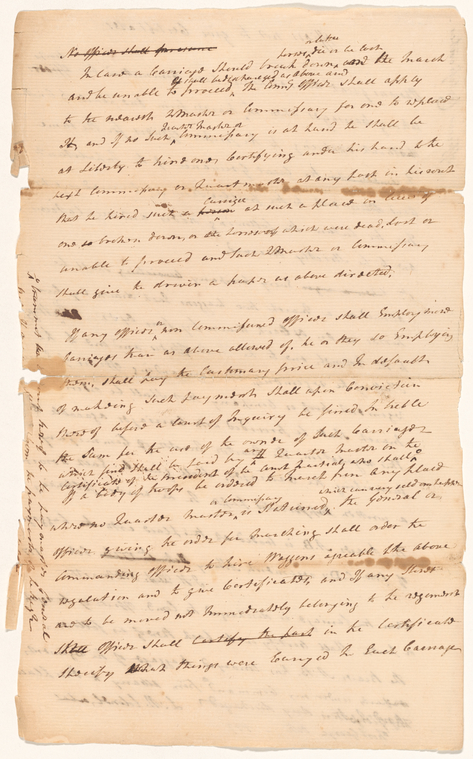 No officer shall presume
a letter
horses, die or be lost
In case a Carriage should break down, and the March
it shall be [...] as above and
and be unable to proceed the Comg Officer shall apply
to the nearest QMaster or Commissary for one to replace
Quarter Master or
it, and if no such Commissary is at hand he shall be
at liberty to hire one Certifying under his hand to the
next Commissary or Quart. mastr. at any post in his rout
Carriage
that he hired such a horse at such a place in lieu of
one so broken down, or the horses of which were dead, lost or
unable to proceed and such QMaster or Commissary
shall give the driver a paper as above directed.
If any officer or non Commissioned officer shall Employ more
Carriages than as above allowed of, he or they so Employing
them, shall pay the Customary price and in default
of making such payments shall upon Conviction
thereof before a Court of Inquiry be fined in treble
the Sum for the use of the owner of such Carriage
which fine shall be sent by the Quarter Master on the
Certificate of the President of the Court
If a Body of troops be ordered to march from any place
a Commissary which can very seldom happen
where no Quarter Master is Stationed, the General or
officer giving the order for Marching shall order the
Commanding officer to hire Waggons agreable to the above
regulation and to give Certificates, and if any Stores
are to be moved not immediately belonging to the regiment
Shall officer shall Certify the part in the Certificate
specify what things were Carryed in such Carriages